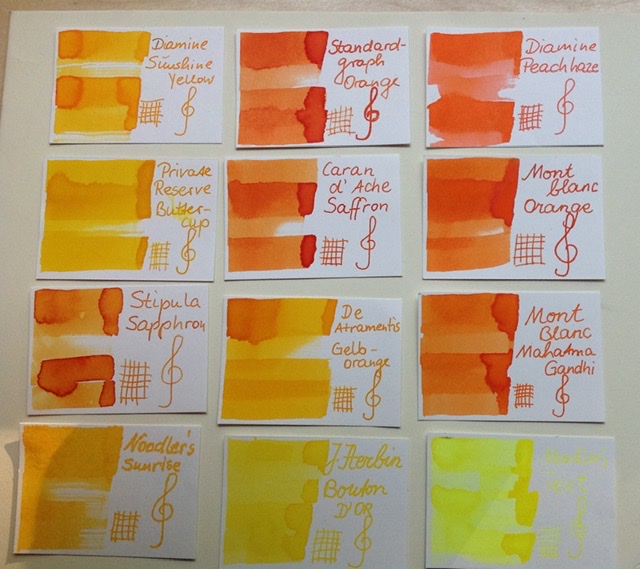 Diamine
Sunshine
Yellow
Standard-
graph
Orange
Diamine
Peachhaze
Private
Reserve
Butter-
cup
Caran
d'Ache
Saffron
Mont
blanc
Orange
Stipula
Sapphron
De
Atramentis
Gelb-
orange
Mont
Blanc
Mahatma
Gandhi
Noodler's
Sunrise
J. Herbin
Bouton
D'OR